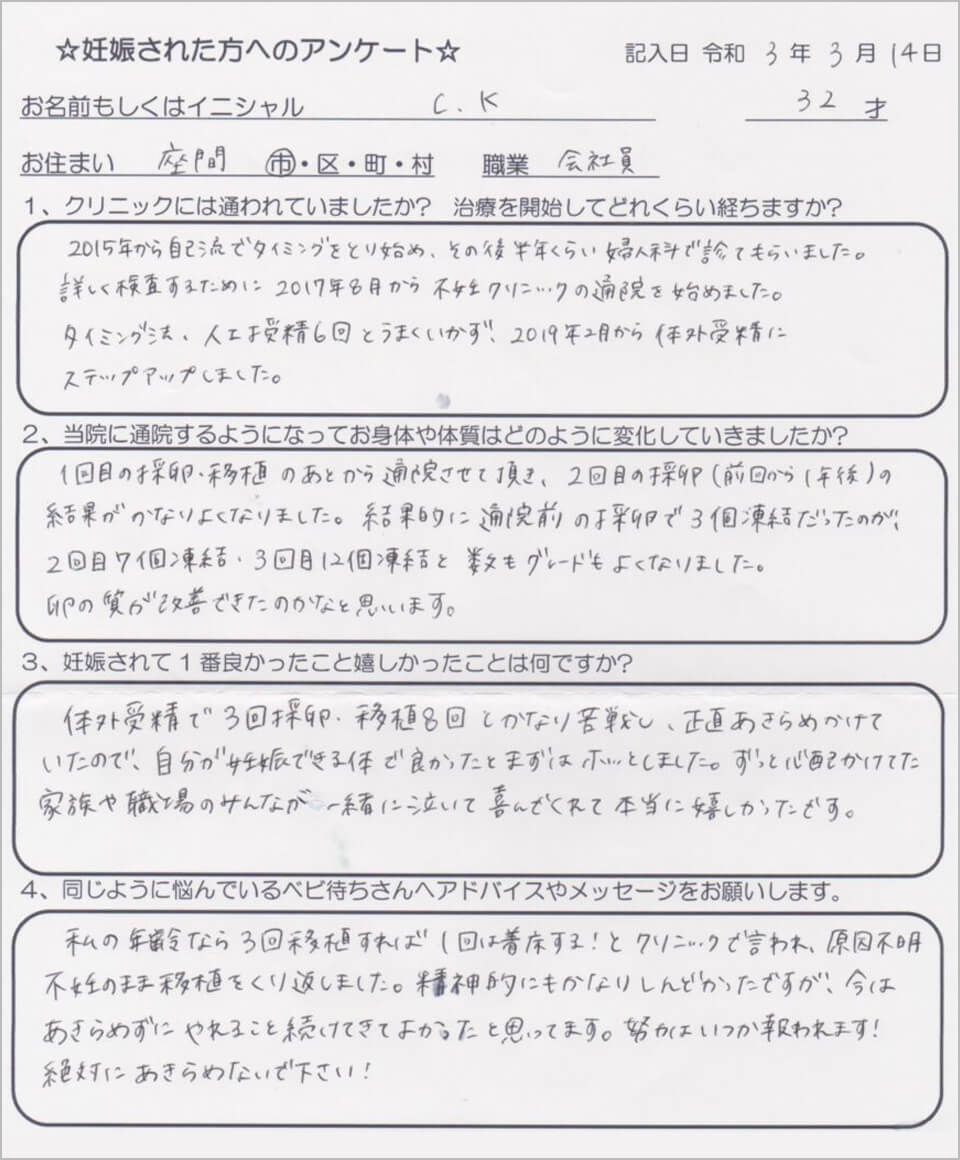 ☆妊娠された方へのアンケート☆ 記入日 令和 3 年 3 月 14日
お名前もしくはイニシャル C.K 32 才
お住まい 座間 市・区・町・村 職業 会社員
1、クリニックには通われていましたか? 治療を開始してどれくらい経ちますか?
2015年から自己流でタイミングをとり始め、その後半年くらい婦人科で診てもらいました。
詳しく検査するために 2017年8月から 不妊クリニックの通院を始めました。
タイミング法、人工受精6回とうまくいかず、2019年2月から 体外受精に
ステップアップしました。
2、当院に通院するようになってお身体や体質はどのように変化していきましたか?
1回目の採卵・移植 のあとから 通院させて頂き、2回目の採卵(前回から1年後)の
結果が かなりよくなりました。結果的に 通院前 の採卵で 3個凍結だったのが、
2回目7個凍結・3回目12個凍結と 数もグレードもよくなりました。
卵の質が改善できたのかなと思います。
3、妊娠されて1番良かったこと嬉しかったことは何ですか?
体外受精で 3回採卵・移植8回 とかなり苦戦し、正直あきらめかけて
いたので、自分が妊娠できる体で良かったとまずはホッとしました。ずっと心配かけてた
家族や職場のみんなが 一緒に泣いて 喜んでくれて 本当に嬉しかったです。
4、同じように悩んでいるベビ待ちさんへアドバイスやメッセージをお願いします。
私の年齢なら 3回移植すれば 1回は着床する!と クリニックで言われ、原因不明
不妊のまま移植をくり返しました。精神的にもかなりしんどかったですが、今は
あきらめずに やれること続けてきてよかったと思ってます。努力はいつか報われます!
絶対に あきらめないで下さい!